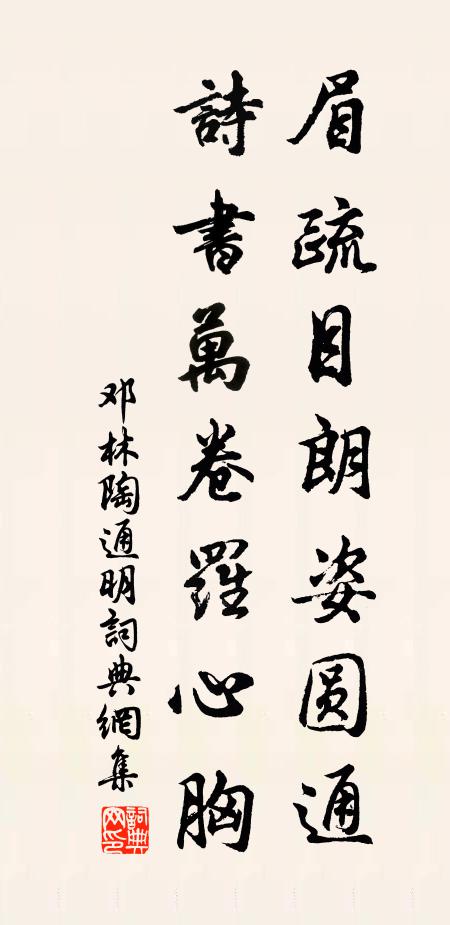 眉疏目朗姿圆通
詩書萬卷羅心胸
邓林陶通明詞典網集
詞典网印